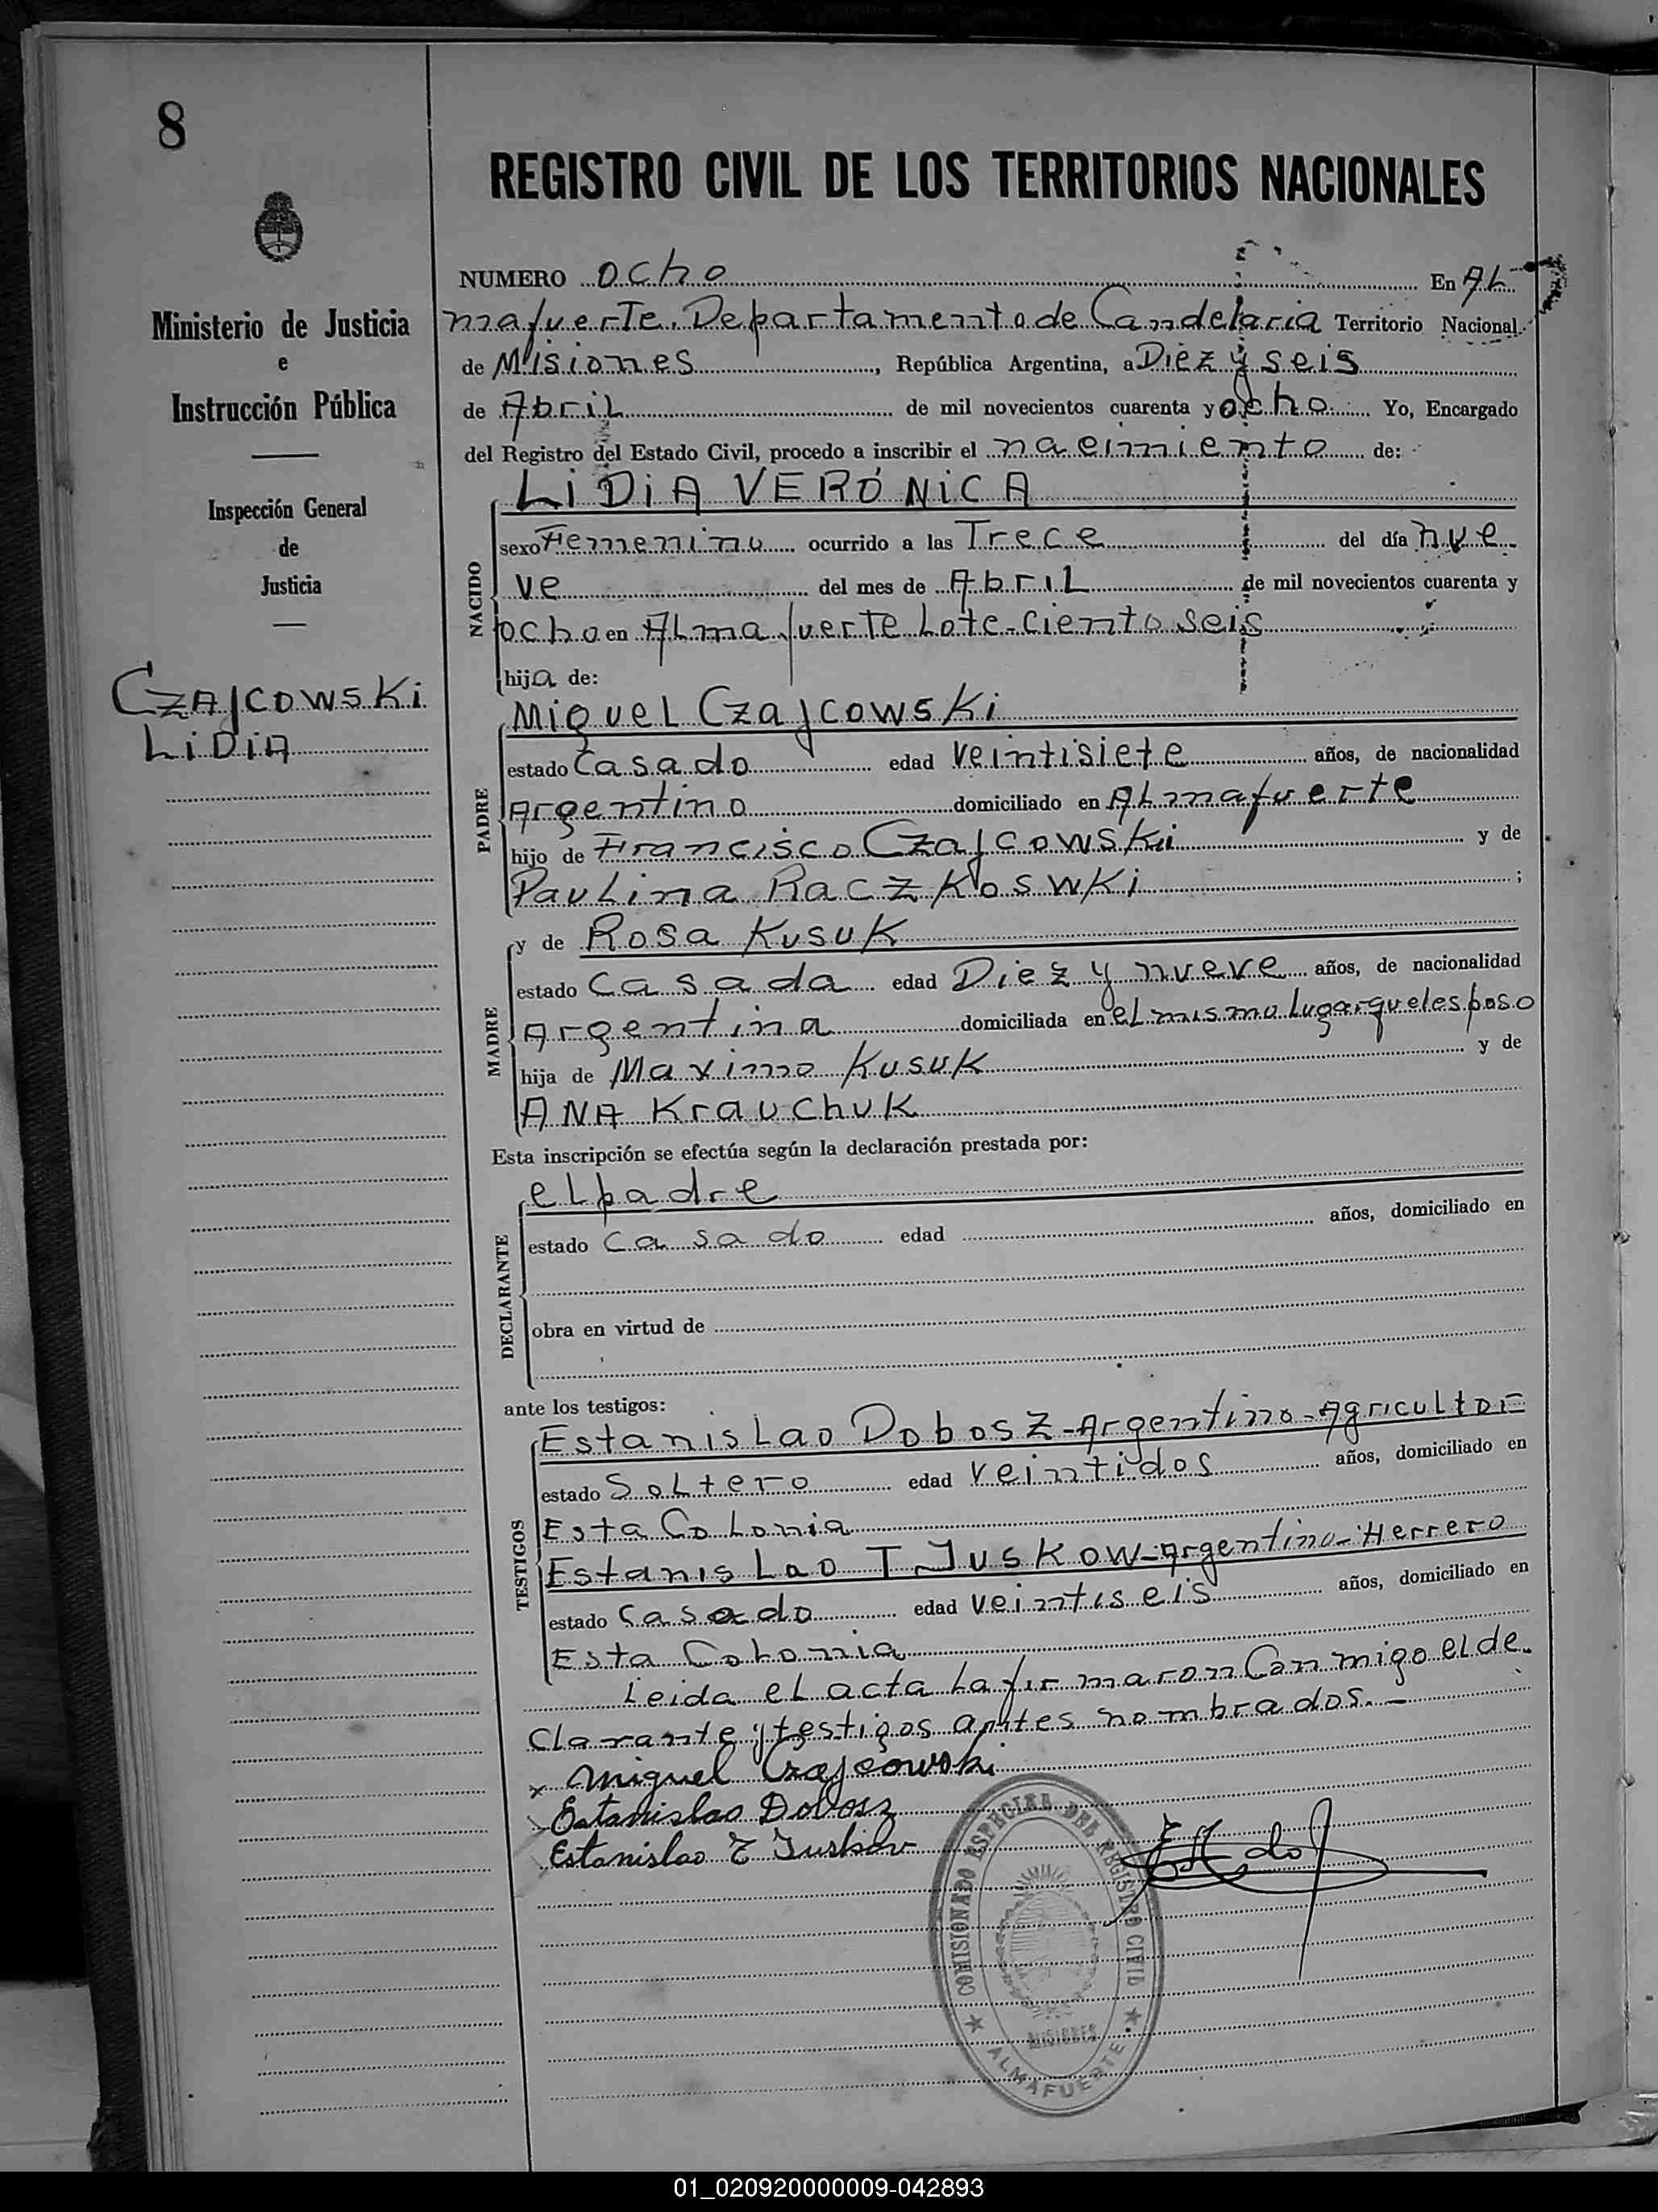 8
Ministerio de Justicia
e
Instrucción Pública
Inspección General
de
Justicia
CZAJCOWSKi
LiDiA
REGISTRO CIVIL DE LOS TERRITORIOS NACIONALES
NUMERO ocho En AL
mafuerte. Departamento de Candelaria Territorio Nacional
de Misiones, República Argentina, a Diez y seis
de Abril de mil novecientos cuarenta y ocho Yo, Encargado
del Registro del Estado Civil, procedo a inscribir el nacimiento de:
NACIDO
LiDiA VERÓNiCA
sexo Femenino ocurrido a las Trece del día nue
ve del mes de Abril de mil novecientos cuarenta y
ocho en Almafuerte Lote-ciento seis
hija de:
PADRE
Miguel Czajcowski
estado Casado edad veintisiete años, de nacionalidad
Argentino domiciliado en Almafuerte
hijo de Francisco Czajcowski y de
Paulina Raczkoswki;
MADRE
y de Rosa Kusuk
estado Casada edad Diez y nueve años, de nacionalidad
Argentina domiciliada en el mismo lugar que el esposo
hija de Maximo Kusuk y de
ANA Krauchuk
Esta inscripción se efectúa según la declaración prestada por:
DECLARANTE
el padre
estado casado edad años, domiciliado en
obra en virtud de
ante los testigos:
TESTIGOS
Estanislao Dobosz-Argentino-Agricultor
estado Soltero edad veintidos años, domiciliado en
Esta Colonia
Estanislao T Juskow-Argentino-Herrero
estado Casado edad veintiseis años, domiciliado en
Esta Colonia
Leida el acta la firmaron Conmigo el de
clarante y testigos antes nombrados.-
x Miguel Czajcowski
Estanislao Dobosz
Estanislao T Juskow
COMISIONADO ESPECIAL DEL REGISTRO CIVIL
MISIONES
ALMAFUERTE
01_020920000009-042893